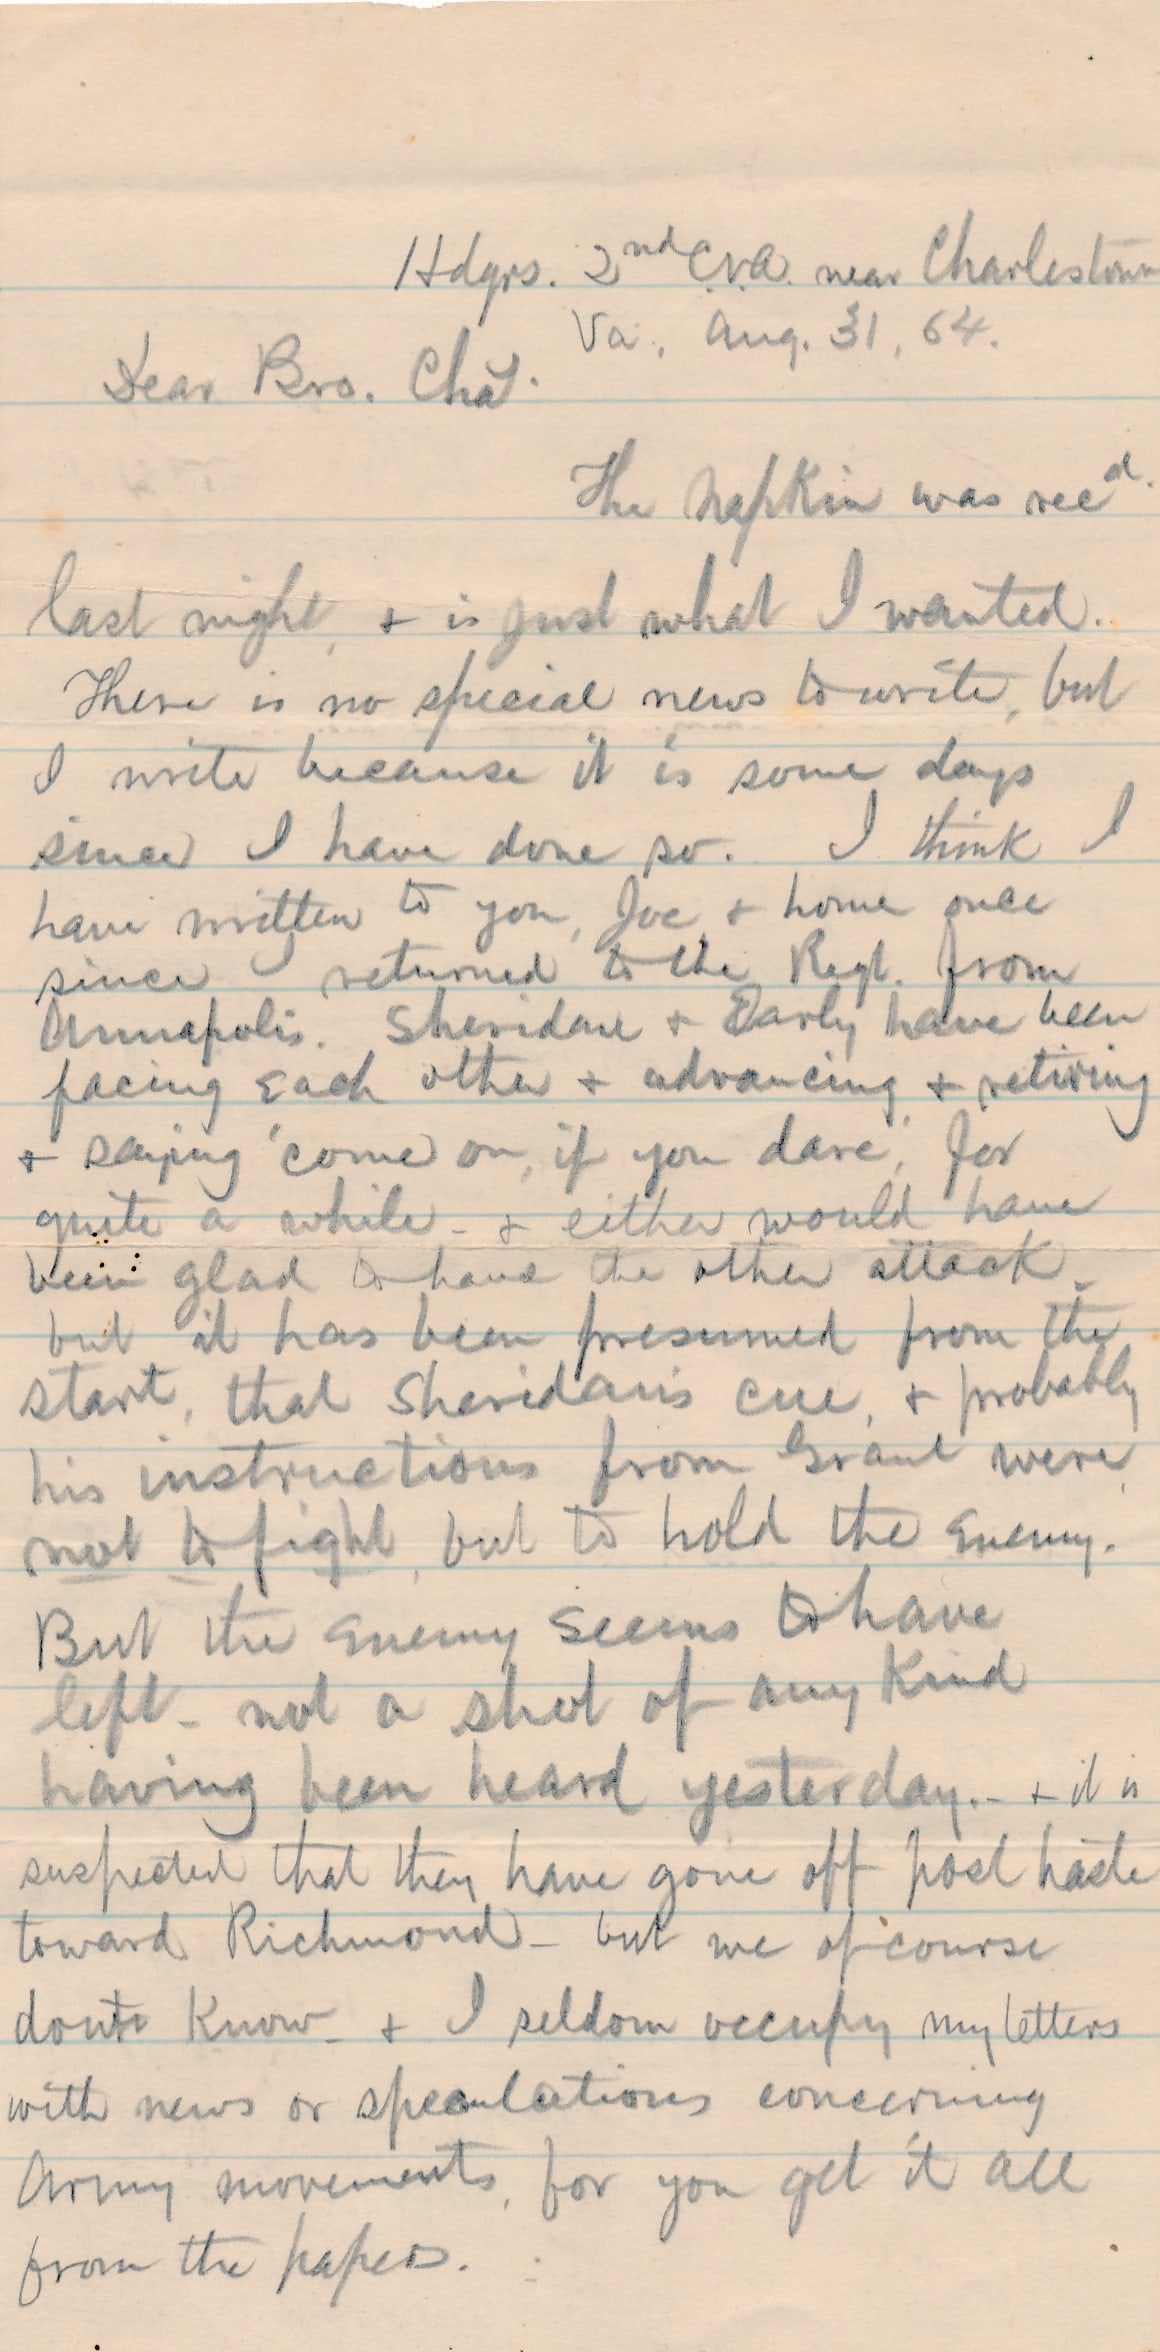 Hdqrs. 2nd C.V.A. near Charlestown
Va., Aug. 31, 64.
Dear Bro. Chat.
The napkin was recd.
last night, + is just what I wanted.
There is no special news to write, but
I write because it is some days
since I have done so. I think I
have written to you, Joe, + home once
since I returned to the Regt. from
Annapolis. Sheridan + Early have been
facing Each other + advancing + retiring
+ saying 'come on, if you dare', for
quite a while - + either would have
been glad to have the other attack -
but it has been presumed from the
start, that Sheridan's cue, + probably
his instructions from Grant were,
not to fight, but to hold the Enemy.
But the Enemy seems to have
left - not a shot of any kind
having been heard yesterday. - + it is
suspected that they have gone off post haste
toward Richmond - but we of course
don't know - + I seldom occupy my letters
with news or speculations concerning
Army movements, for you get it all
from the papers.